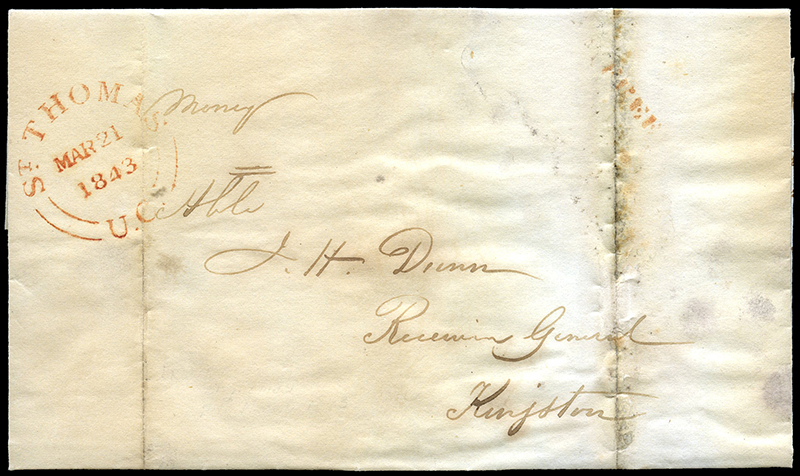 ST. THOMAS.
MAR 21
1843
U.C.
Money
Hble
J. H. Dunn
Receiver General
Kingston